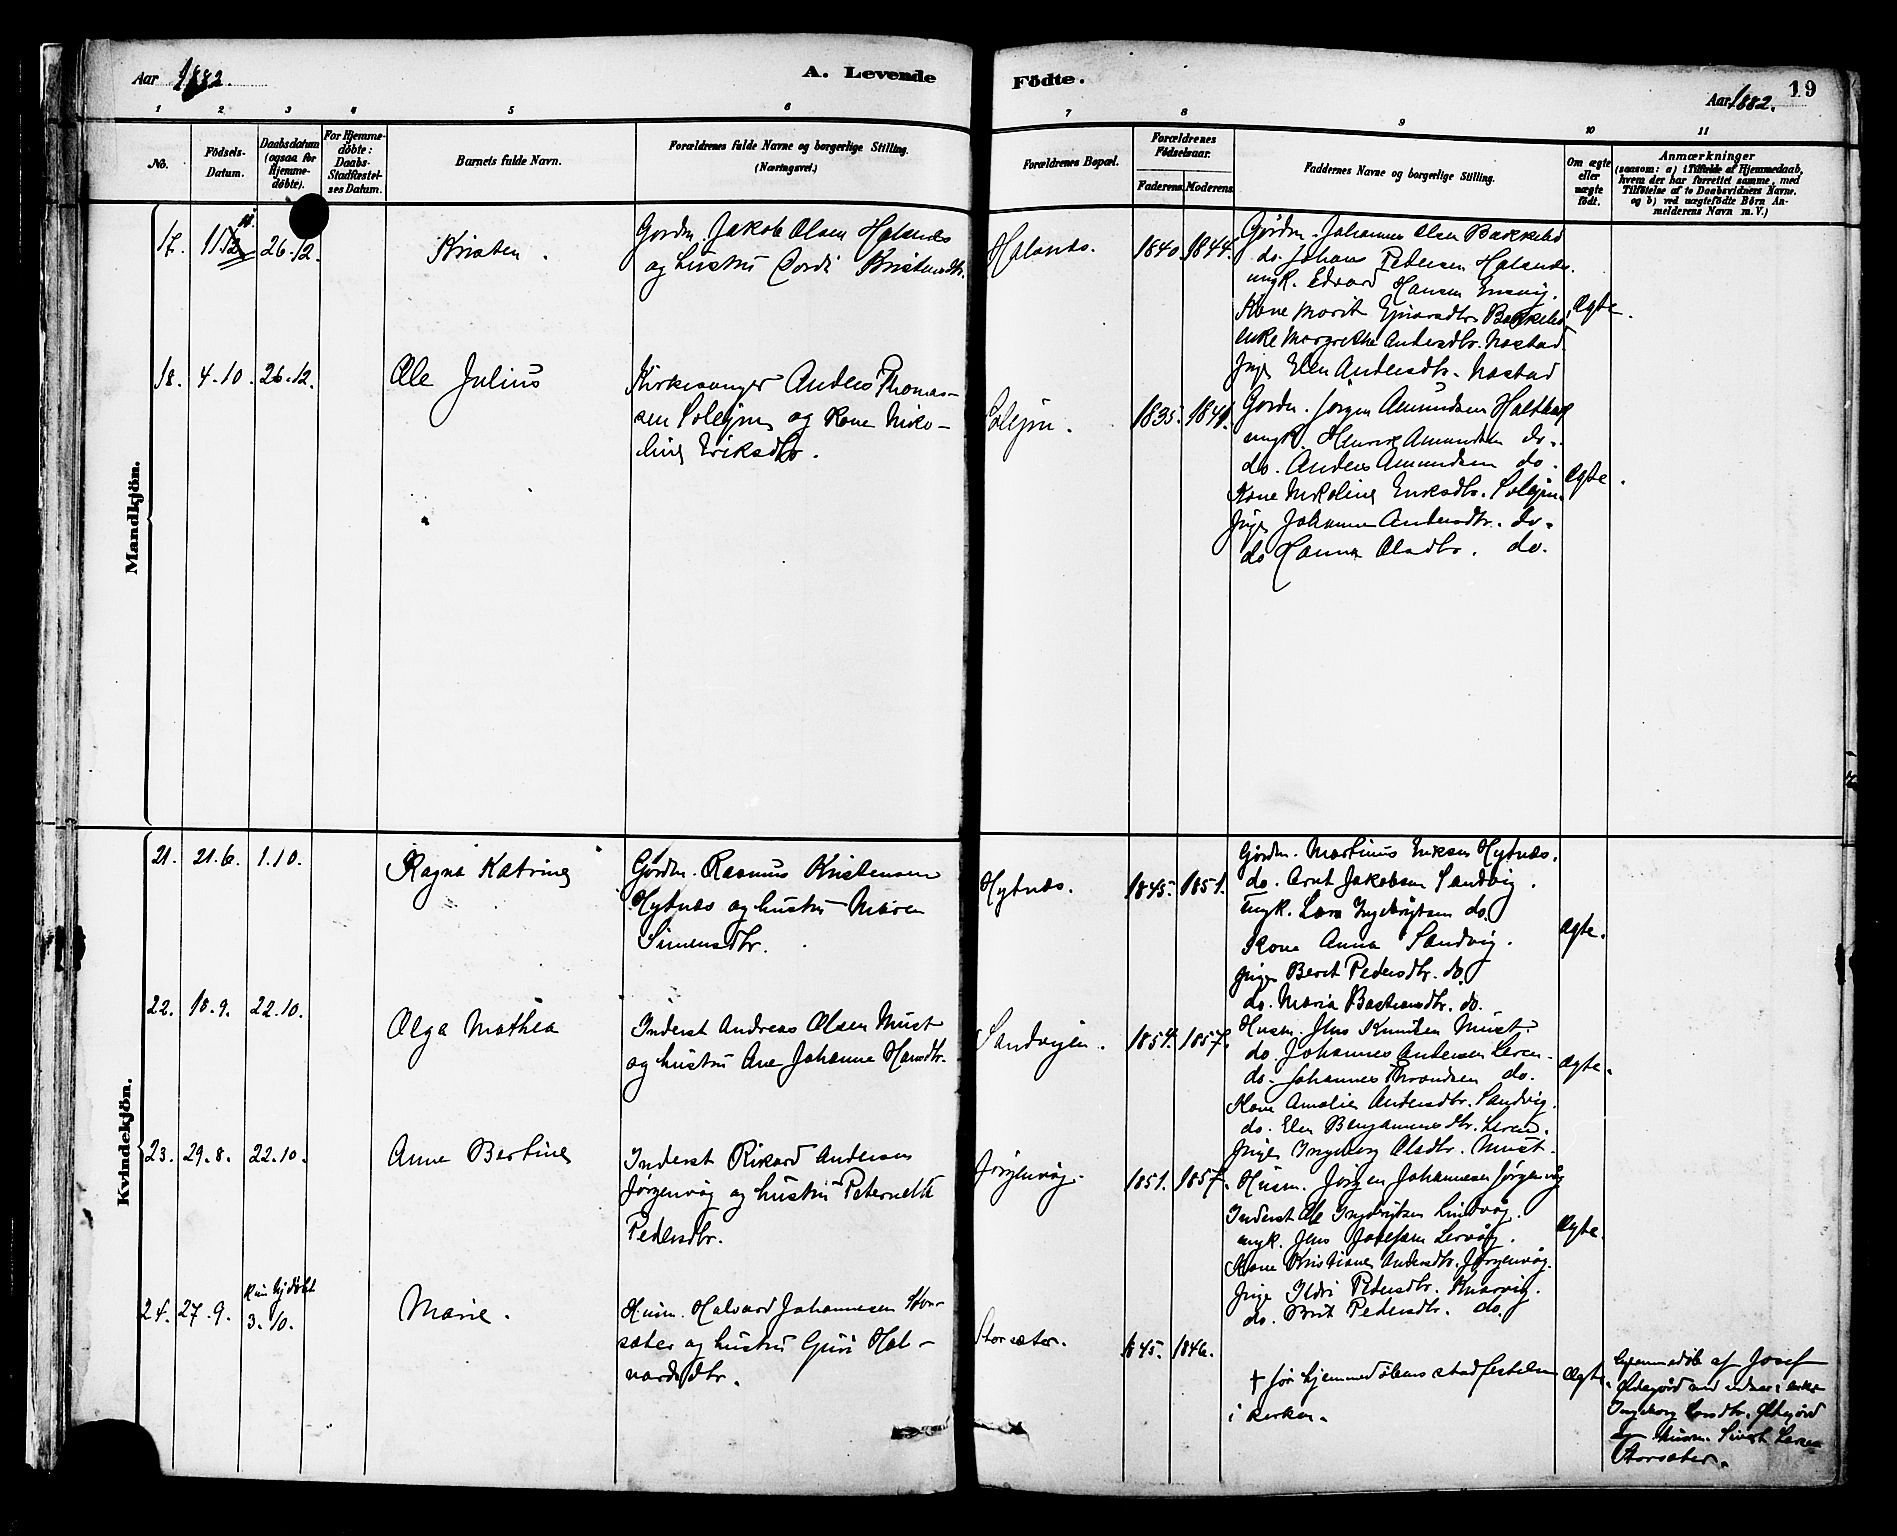 Aar 1882.
A. Levende
Fødte.
Aar 1882.
19
1 2 3 4 5 6 7 8 9 10 11
No.
Fødsels-
Datum.
Daabsdatum
(ogsaa for
Hjemme-
døbte).
For Hjemme-
døbte:
Daabs-
Stadfæstel-
ses Datum.
Barnets fulde Navn.
Forældrenes fulde Navne og borgerlige Stilling.
(Næringsvei.)
Forældrenes Bopæl.
Forældrenes
Fødselsaar.
Faderens. Moderens.
Faddernes Navne og borgerlige Stilling.
Om ægte
eller
uægte
født.
Anmærkninger
(saasom: a) i Tilfælde af Hjemmedaab,
hvem der har forrettet samme, med
Tilføielse af to Daabsvidners Navne.
og b) ved uægtefødte Børn An-
melderens Navn m. V.)
Mandkjön.
17.
26.12.
Kristen.
Gordm. Jakob Olsen Halsnæs
og hustru Kristensdtr.
Halsnæs.
1840. 1844.
Gordm. Johannes Olsen Bækkelid
do. Johans Pedersen Halsnæs.
ungk. Edvard Hansen
Kone Marit Bækkelid
enke Margrethe Andersdtr. Nastad
pige Elen Andersdtr. Nastad
Ægte.
18. 4.10. 26.12.
Ole Julius
Kirkesanger Anders Thomas-
sen Solejm og Kone Niko-
line Eriksdtr.
Solejm.
1835. 1841.
Gordm. Jørgen Amundsen
ungk. Henrik Amundsen do.
do. Anders Amundsen do.
Kone Nikoline Eriksdtr. Solejm.
pige Johanne Andersdtr. do.
do Hanna Olsdtr. do.
Ægte.
Kvindekjön.
21. 21.6. 1.10.
Ragna Katrine
Gordm. Rasmus Kristensen
Hytnæs og hustru Maren
Simensdtr.
Hytnæs.
1845. 1851.
Gordm. Martinus Eriksen Hytnæs.
do. Arnt Jakobsen Sandvig.
ungk. Lars Ingebrigtsen do.
Kone Anna Sandvig.
pige Berit Pedersdtr. do.
do. Maria Bastiansdtr. do.
Ægte.
22. 18.9. 22.10.
Olga Mathea
Inderst Andreas Olsen Must
og hustru Ane Johanne Hansdtr.
Sandvigen.
1854. 1857.
Husm. Jens Knudsen Must
do. Johannes Andersen Leren.
do. Johannes Throndsen do.
Kone Amalie Andersdtr. Sandvig.
do. Elen Benjaminsdtr. Leren.
pige Ingeborg Olsdtr. Must.
Ægte.
23. 29.8. 22.10.
Anne Bertine
Inderst Rikard Andersen
Jørgenvåg og hustru Peternelle
Pedersdtr.
Jørgenvåg.
1851. 1857.
Husm. Jørgen Johannesen Jørgenvåg
Inderst Ole Ingebrigtsen
ungk. Jens Josefsen Lervåg.
Kone Kristiane Andersdtr. Jørgenvåg.
pige Ildri Pedersdtr.
do. Brit Pedersdtr. do.
Ægte.
24. 27.9.
Kun hjdøbt
3.10.
Marie.
Husm. Halvard Johannesen Stor-
sæter og hustru Guri Hal-
vardsdtr.
Storsæter.
1845. 1846.
† før hjemmedåbens stadfestelse
i kirken.
Ægte.
Hjemmedøbt af Josef
Ingeborg Larsdtr.
og Husm. Sivert
Storsæter.